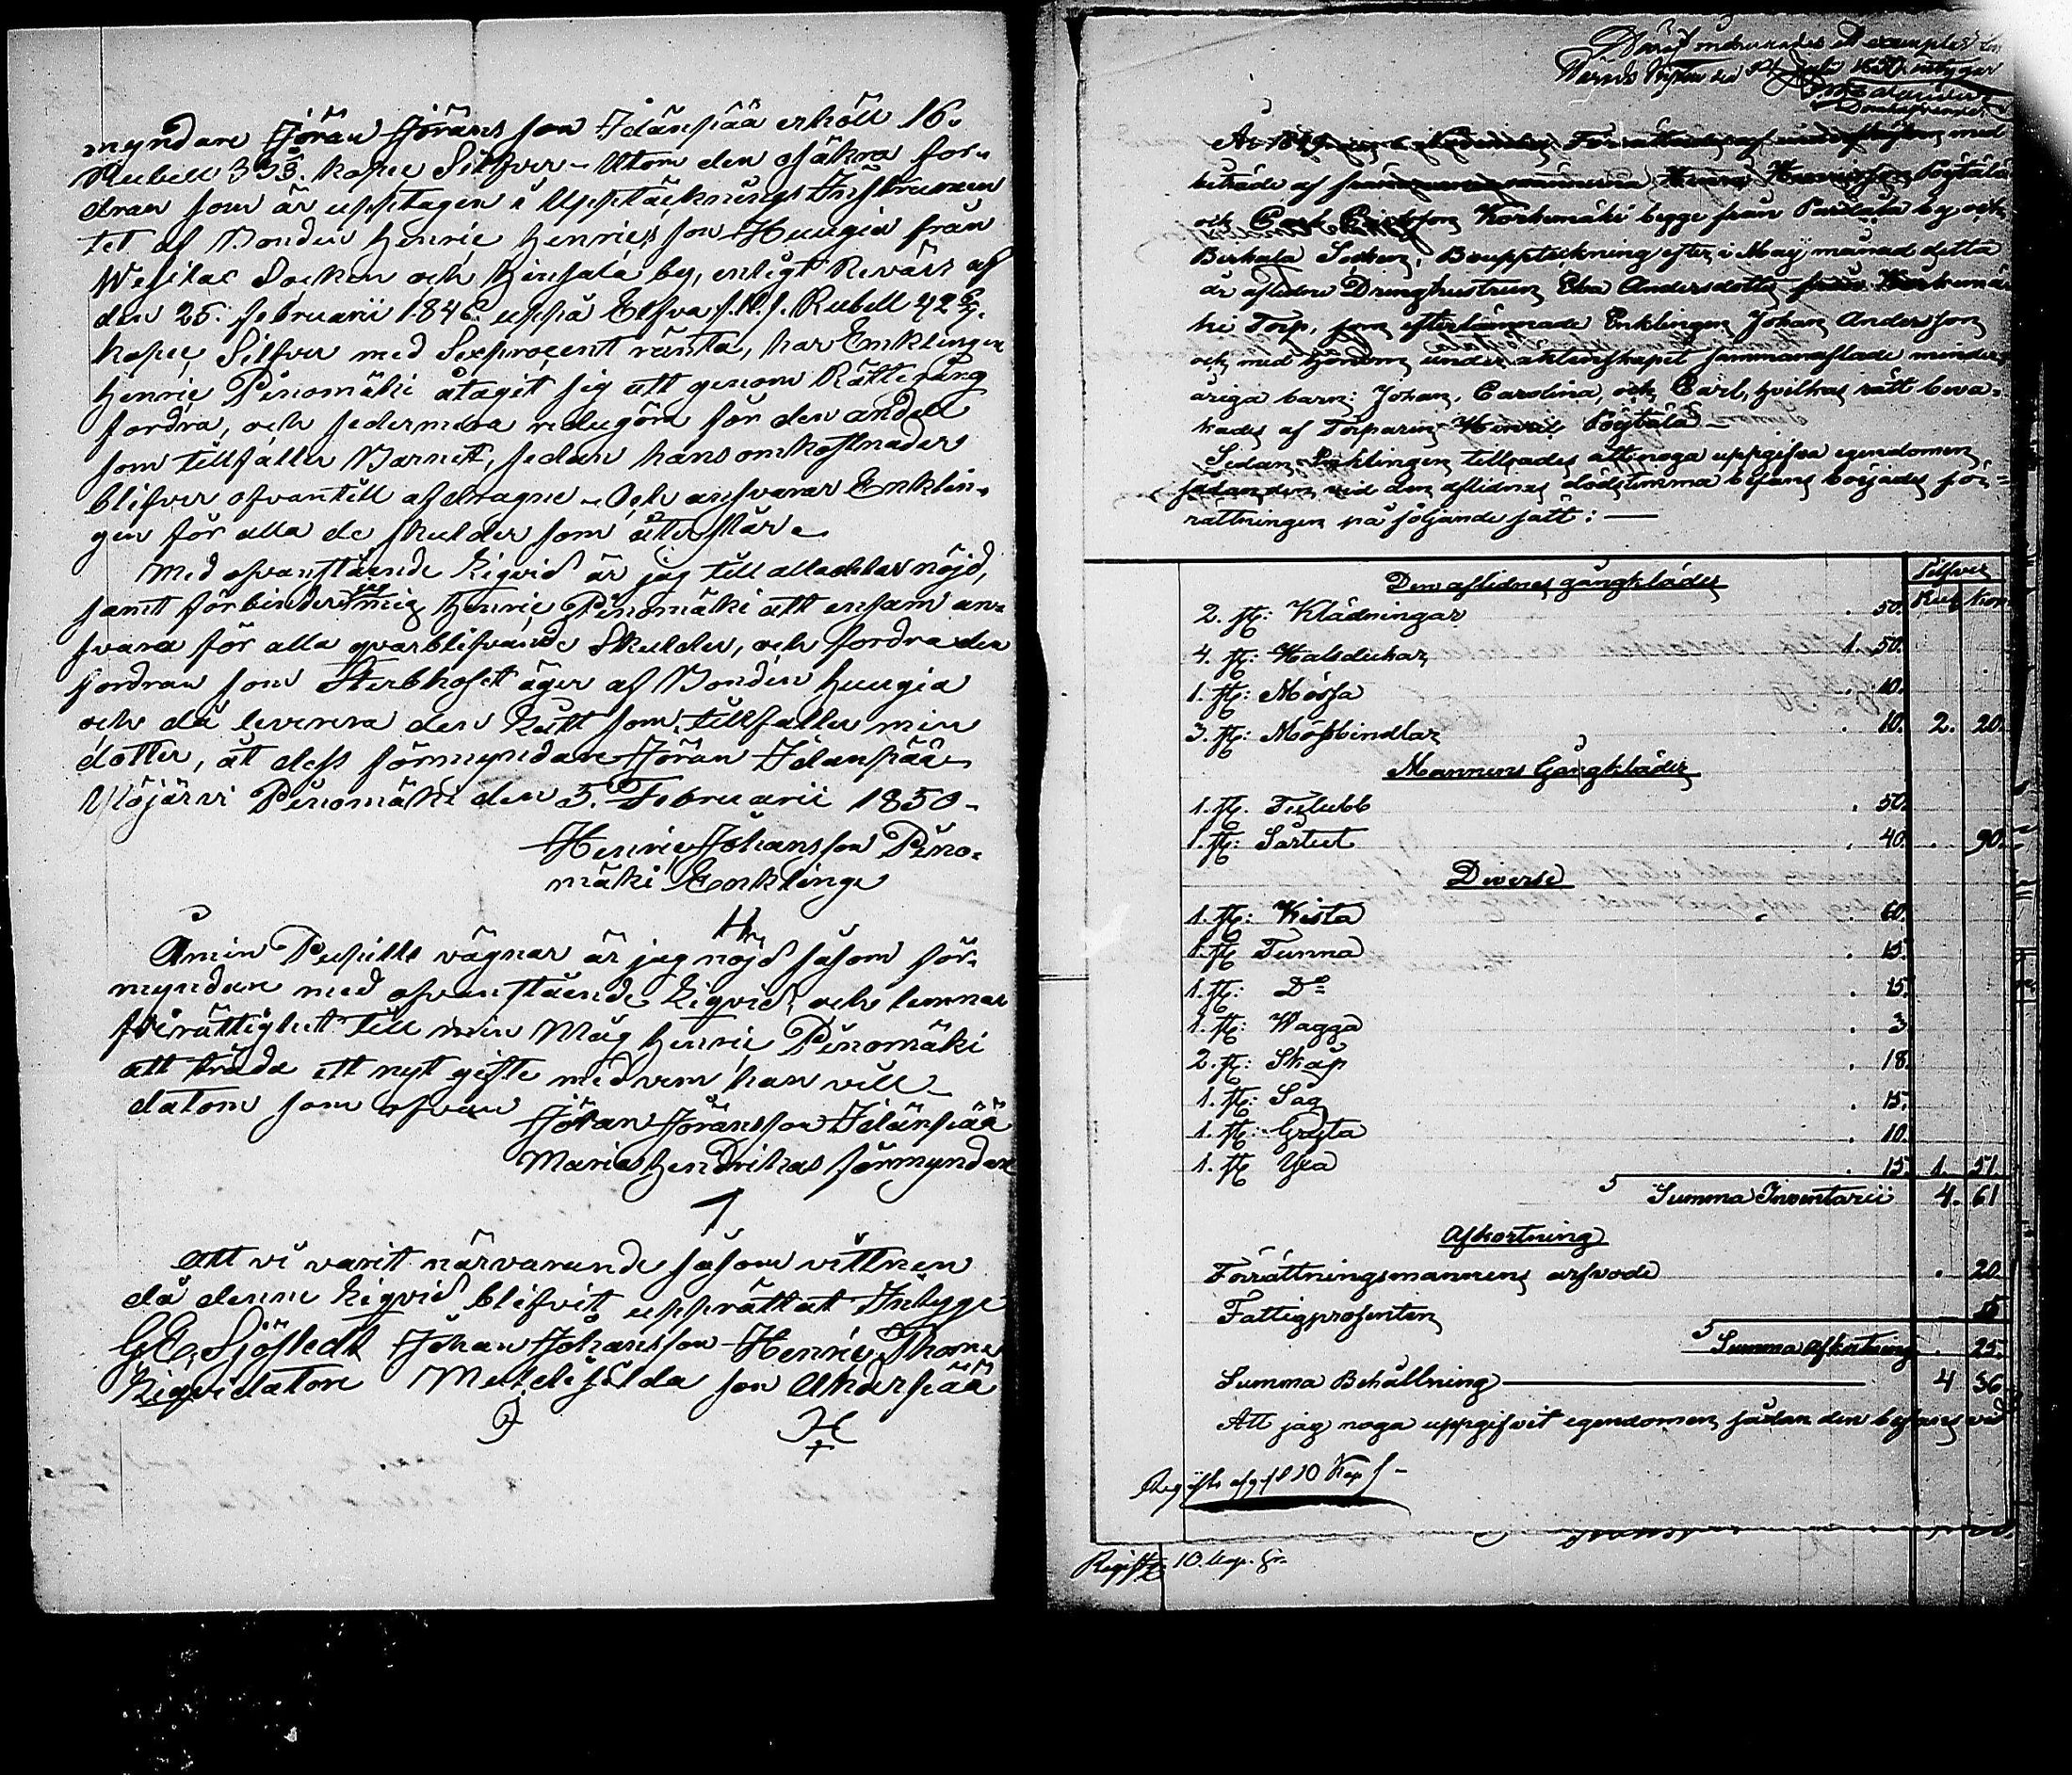 myndare Jöran Jörans son Idänpää erhöll 16.
Rubell kopek Silfver - Utom den osäkra for-
dran som är upptagen i Upptäcknings Instrumen
tet af Bonden Henric Henrics son Huugia från
Wesilax Socken och Hinsala by, enligt Revärs af
den 25. februarii 1846 uppå Elfva Rubell
kopek Silfver med Sexprocent ränta, har Enklingen
Henric Pinomäki åtagit sig att genom Rättegång
fordra, och sedermera redugöra för den andell
som tillfaller Barnet, sedan hans omkostnader
blifver ofvantill afdragne - Och ansvarar Enklin-
gen för alla de skulder som återstår
Med ofvanstående Liqvid är jag till alla delar nöjd,
samt förbinder jag mig Henric Pinomäki att ensam an-
svara för alla qvarblifvande Skulder, och fordra den
fordran som Sterbhoset äger af Bonden Huugia
och då leverera den Rätt som tillfaller min
dotter, åt dess förmyndare Jöran Idänpää
Ylöjärvi Pinomäki den 5. Februarii 1850-
Henric Johansson Pino-
mäki Enkling
Å min Pupills vägnar är jag nöjd såsom för-
myndare med ofvanstående Liqvid, och lemnar
rättighet till min Måg Henric Pinomäki
att träda ett nytt gifte med vem han vill
datom som ofvan
Jöran Jöransson Idänpää
Marias Hendrikas förmyndare
Att vi varit närvarande såsom vittnen
då denne Liqvid blifvit upprättat Intyga
G. E. Sjöstedt Johan Johansson Henric Thoma
Liqvidatore son
Däraf med exemplar
den 14 Juli 1850 intygar
År 1849 den 6 November Förrättades af undertecknad med
biträde af Henric Henricsson Pöytälä
och Carl Ericsson Korkemäki begge från Pardala by och
Birkala Socken, Bouppteckning efter i Maij månad detta
år aflidne Drenghustrun Eva Andersdotter från Korkemä
ki Torp, som efterlämnade Enklingen Johan Andersson
och med honom under äktenskapet sammanaflade minder-
åriga barn: Johan, Carolina, och Carl, hvilkas rätt beva-
kades af Torparen Henric Pöytälä
Sedan Enklingen tillsades att noga uppgifva egendomen
sådan den vid den aflidnes dödstimma befans börjades för-
rättningen på följande sätt: —
Silfver
Den aflidnes gångkläder Rub Kop
2. st: Klädningar . 50.
4. st: Halsdukar 1. 50.
1. st: Mössa . 10.
3. st: Mössbindlar . 10. 2. 20.
Mannens Gångkläder
1. st. . 50.
1. st: Sartut . 40. . 90.
Diverse
1. st: Kista . 60.
1. st Tunna . 15.
1. st: Do . 15.
1. st: Wagga . 3
2. st: Skåp . 18.
1. st: Såg . 15.
1. st: Gryta . 10.
1. st Yxa . 15. 1. 51.
Summa Inventarii 4. 61
Afkortning
Förrättningsmannens arfvode . 20.
Fattigprosenten 5
Summa Afkortning . 25.
Summa Behållning 4 36
Att jag noga uppgifvit egendomen sådan den befans vid
10 Kop
10. Kop.